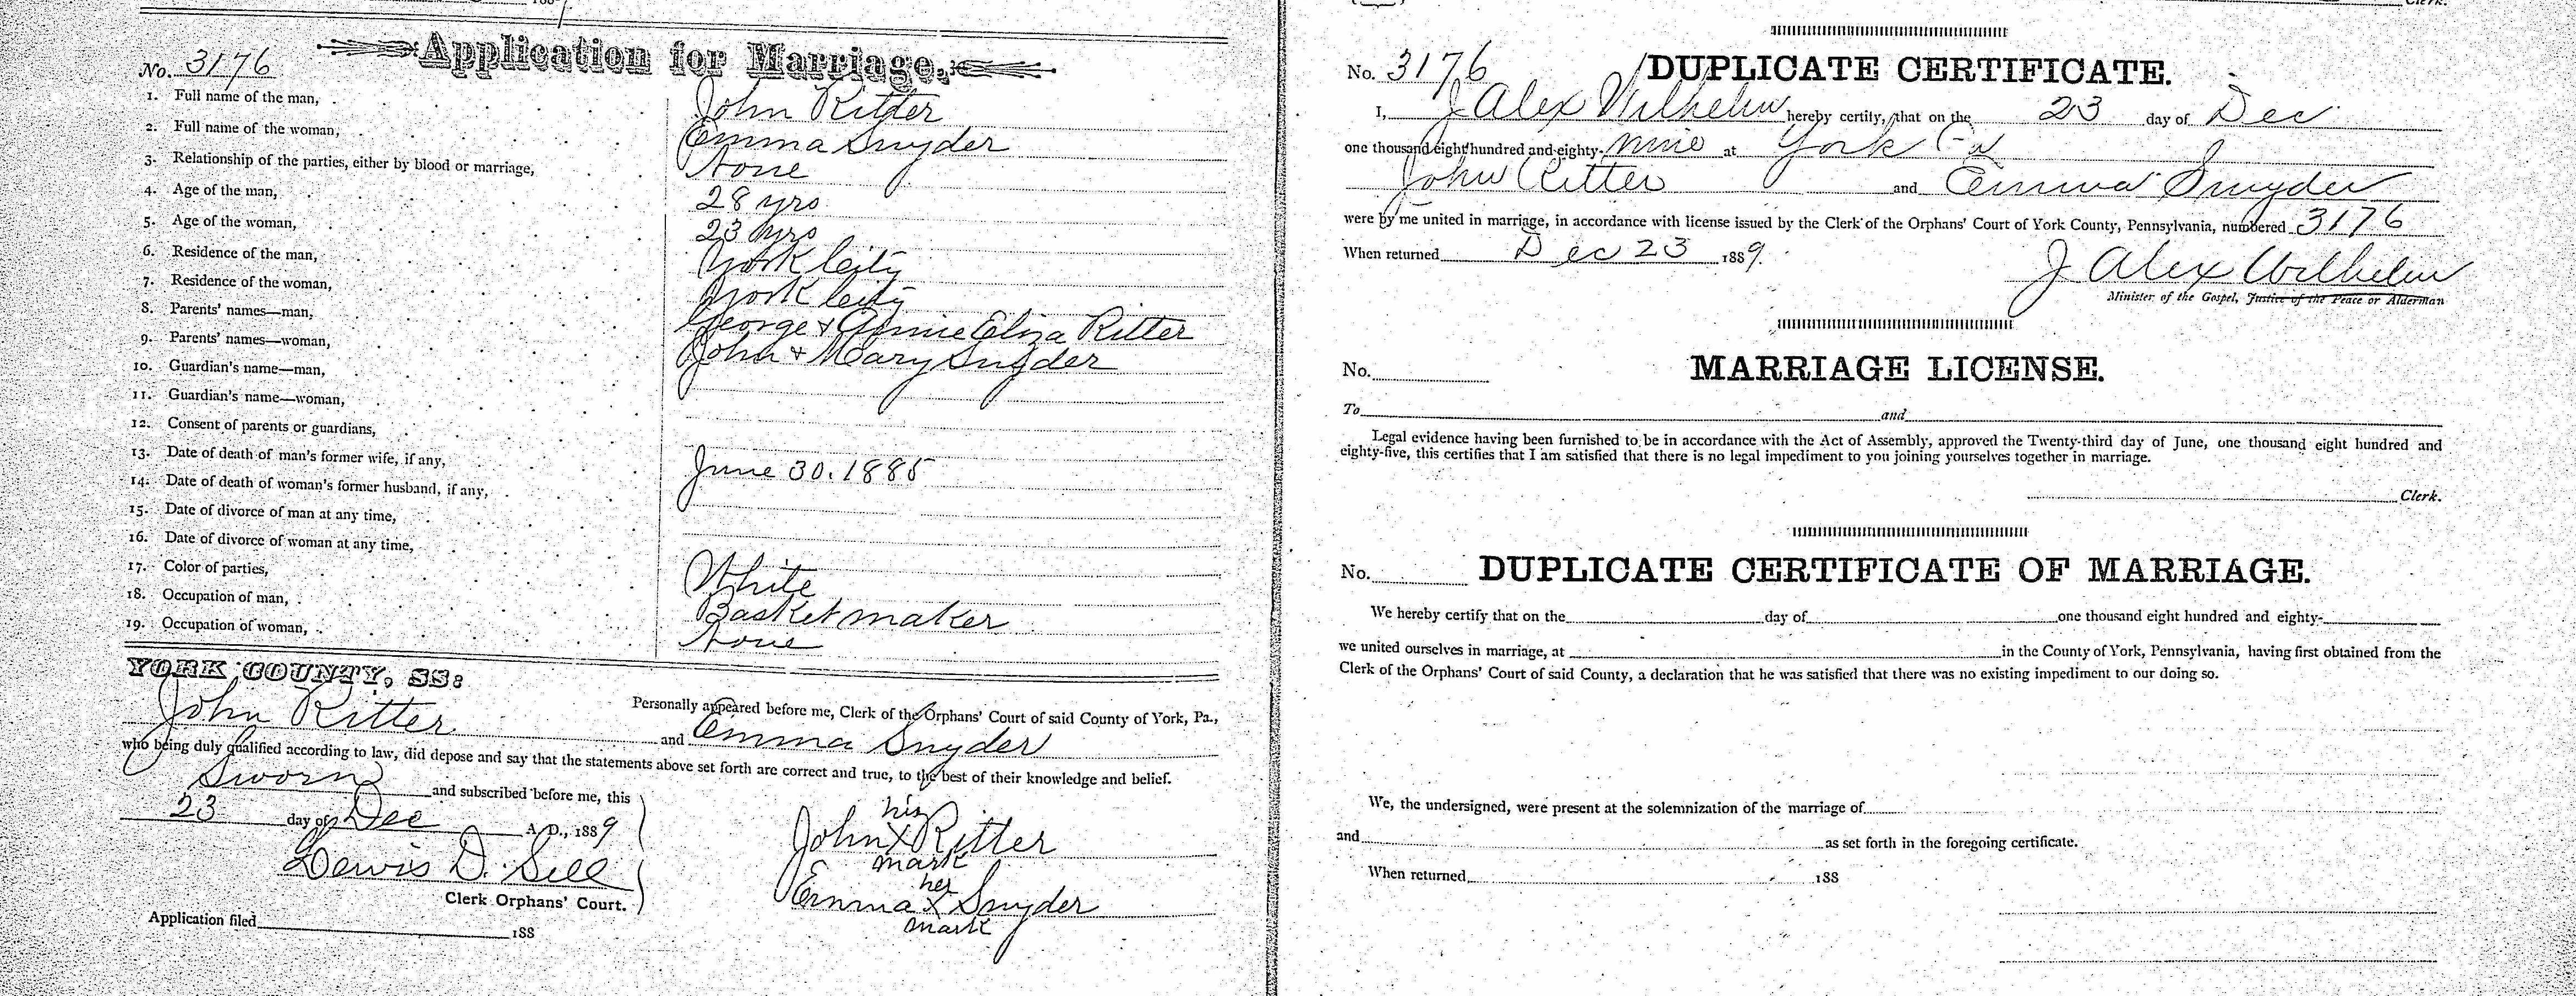 Application for Marriage.
No. 3176
1. Full name of the man, John Ritter
2. Full name of the woman, Emma Snyder
3. Relationship of the parties, either by blood or marriage, None
4. Age of the man, 28 yrs
5. Age of the woman, 23 yrs
6. Residence of the man, York City
7. Residence of the woman, York City
8. Parents' names—man, George & Annie Eliza Ritter
9. Parents' names—woman, John & Mary Snyder
10. Guardian's name—man,
11. Guardian's name—woman,
12. Consent of parents or guardians,
13. Date of death of man's former wife, if any, June 30. 1885
14. Date of death of woman's former husband, if any,
15. Date of divorce of man at any time,
16. Date of divorce of woman at any time,
17. Color of parties, White
18. Occupation of man, Basket maker
19. Occupation of woman, None
YORK COUNTY, SS:
Personally appeared before me, Clerk of the Orphans' Court of said County of York, Pa.,
John Ritter and Emma Snyder
who being duly qualified according to law, did depose and say that the statements above set forth are correct and true, to the best of their knowledge and belief.
Sworn and subscribed before me, this
23 day of Dec A. D., 1889
Lewis D. Sell
Clerk Orphans' Court.
Application filed 188
his
John X Ritter
mark
her
Emma X Snyder
mark
Clerk.
DUPLICATE CERTIFICATE.
No. 3176
I, J Alex Wilhelm hereby certify, that on the 23 day of Dec
one thousand eight hundred and eighty- nine at York Pa
John Ritter and Emma Snyder
were by me united in marriage, in accordance with license issued by the Clerk of the Orphans' Court of York County, Pennsylvania, numbered 3176
When returned Dec 23 1889.
J Alex Wilhelm
Minister of the Gospel, Justice of the Peace or Alderman
MARRIAGE LICENSE.
No.
To and
Legal evidence having been furnished to be in accordance with the Act of Assembly, approved the Twenty-third day of June, one thousand eight hundred and
eighty-five, this certifies that I am satisfied that there is no legal impediment to you joining yourselves together in marriage.
Clerk.
No. DUPLICATE CERTIFICATE OF MARRIAGE.
We hereby certify that on the day of one thousand eight hundred and eighty-
we united ourselves in marriage, at in the County of York, Pennsylvania, having first obtained from the
Clerk of the Orphans' Court of said County, a declaration that he was satisfied that there was no existing impediment to our doing so.
We, the undersigned, were present at the solemnization of the marriage of
and as set forth in the foregoing certificate.
When returned, 188